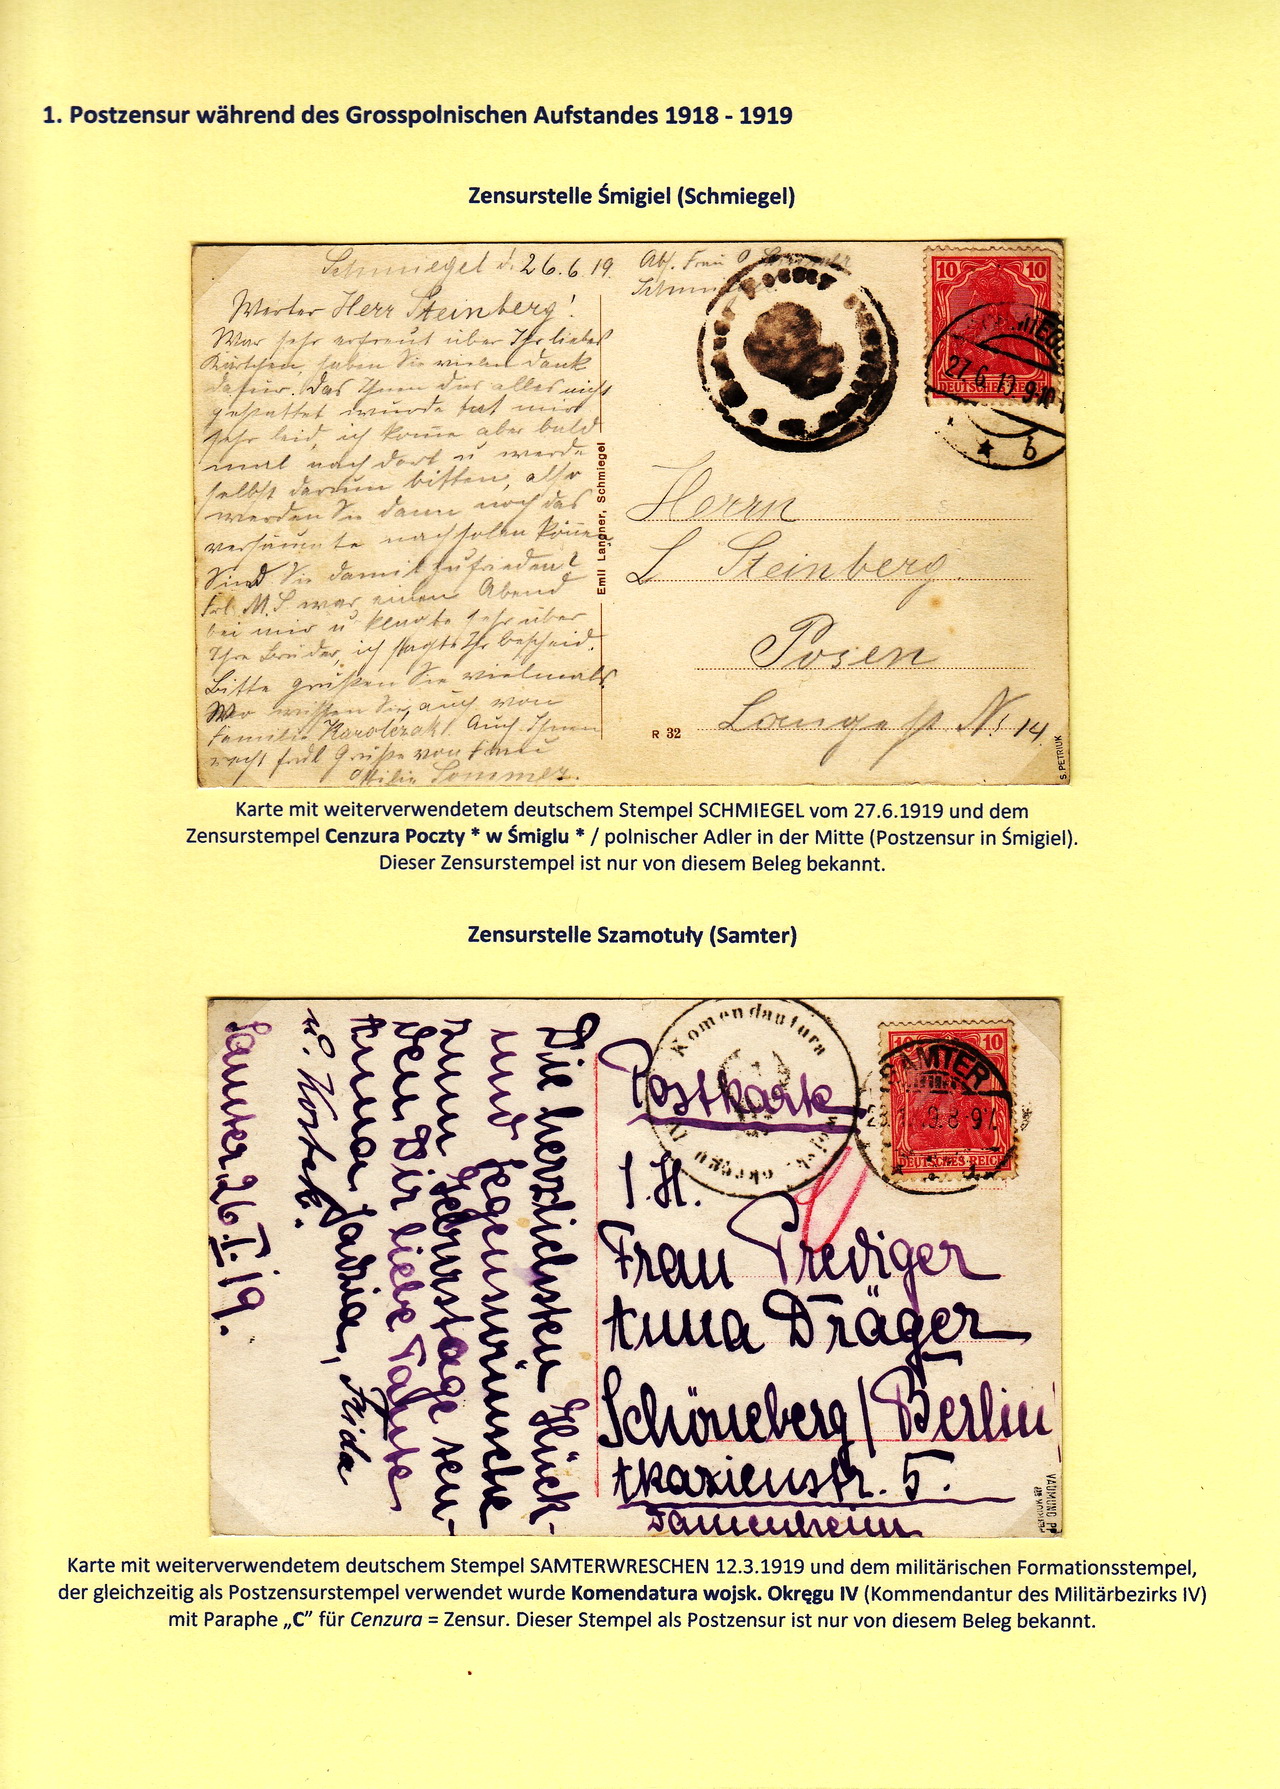 1. Postzensur während des Grosspolnischen Aufstandes 1918 - 1919
Zensurstelle Śmigiel (Schmiegel)
Schmiegel d. 26.6.19.
Werter Herr Steinberg!
War sehr erfreut über Ihr liebes
Kärtchen, haben Sie vielen Dank
dafür. Das Ihnen das alles nicht
gestattet wurde tut mir
sehr leid, ich komme aber bald
mal nach dort u werde
selbst darum bitten, also
werden Sie dann noch das
versäumte nachholen können
Sind Sie damit zufrieden?
Frl. M. S war einen Abend
bei mir u klagte sehr über
Ihre Brüder, ich sagte Ihr bescheid.
Bitte grüßen Sie vielmals
auch von
Familie Karolczak. Auch Ihnen
recht frdl Grüße von Frau
Ottilie Sommer.
Abs. Frau O Sommer
Schmiegel
Emil Langner, Schmiegel
10 10
DEUTSCHES REICH
SCHMIEGEL
27.6.19.9-10
* b
Herrn
L Steinberg.
Posen
Lange St Nr 14
R 32
S. PETRIUK
Karte mit weiterverwendetem deutschem Stempel SCHMIEGEL vom 27.6.1919 und dem
Zensurstempel Cenzura Poczty * w Śmiglu * / polnischer Adler in der Mitte (Postzensur in Śmigiel).
Dieser Zensurstempel ist nur von diesem Beleg bekannt.
Zensurstelle Szamotuły (Samter)
Die herzlichsten Glück-
und Segenswünsche
zum Geburstage sen-
den Dir liebe Tante
Anna Jadzia, Frida
u.
Samter, 26.I.19.
Komendantura
wojsk. okręgu IV
Postkarte
10 10
DEUTSCHES REICH
SAMTER
I. H.
Frau Prediger
Anna Dräger
Schöneberg/Berlin
Akazienstr. 5.
Tannenheim
PETRIUK
Karte mit weiterverwendetem deutschem Stempel SAMTERWRESCHEN 12.3.1919 und dem militärischen Formationsstempel,
der gleichzeitig als Postzensurstempel verwendet wurde Komendatura wojsk. Okręgu IV (Kommendantur des Militärbezirks IV)
mit Paraphe „C” für Cenzura = Zensur. Dieser Stempel als Postzensur ist nur von diesem Beleg bekannt.